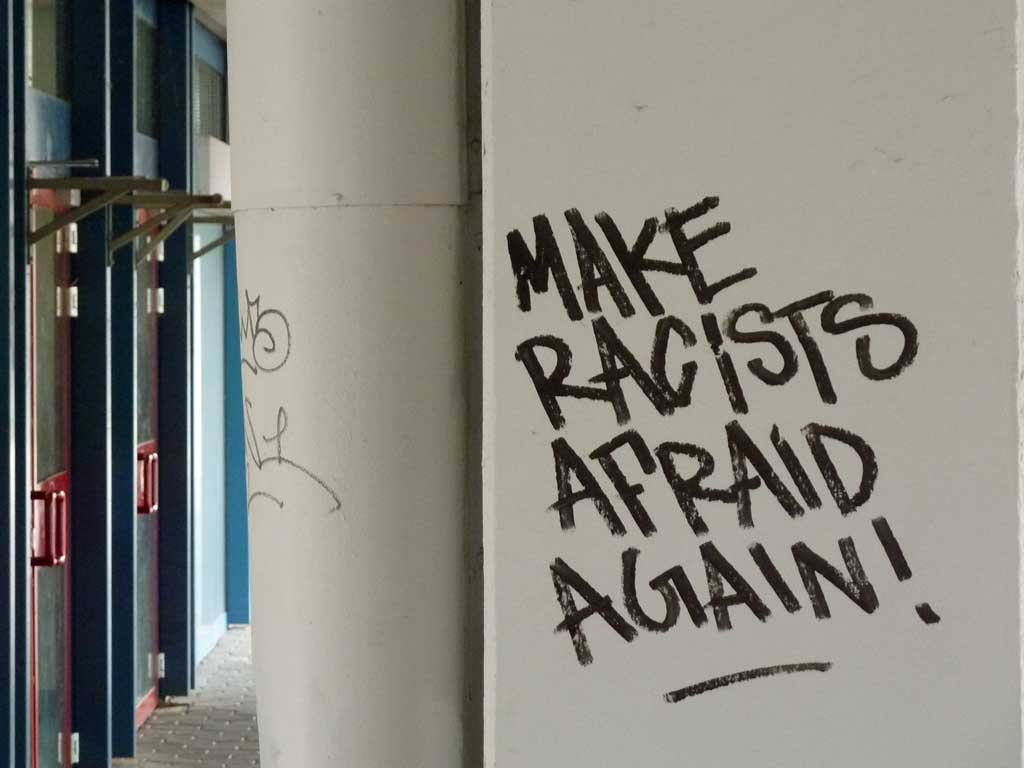 MAKE
RACISTS
AFRAID
AGAIN!